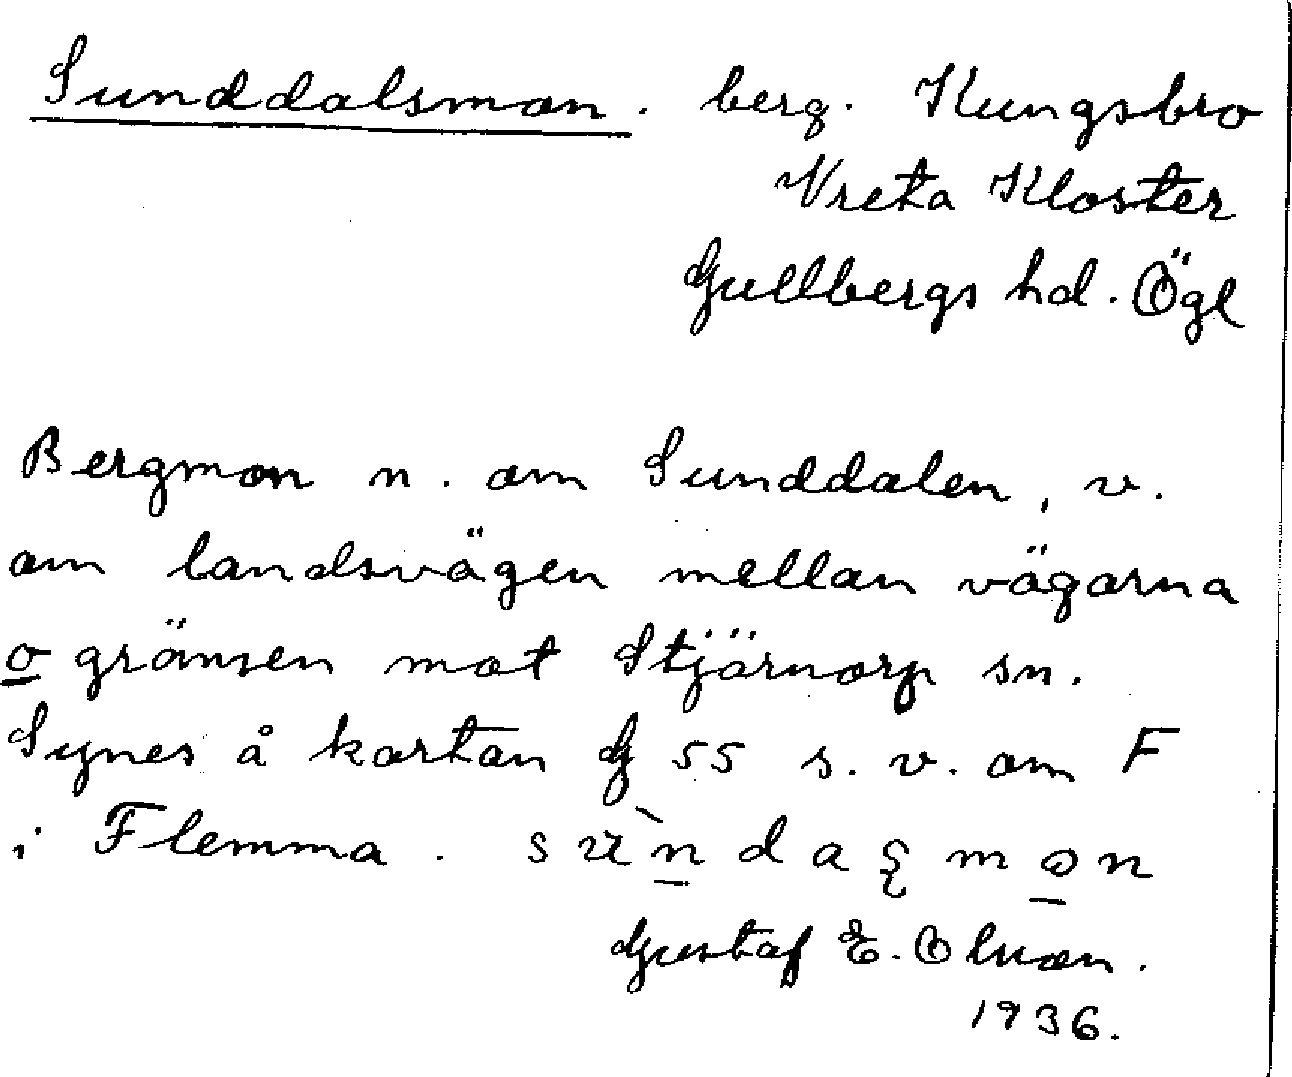 Sunddalsmon. berg. Kungsbro
Vreta Kloster
Gullbergs hd. Ögl
Bergmon n. om Sunddalen, v.
om landsvägen mellan vägarna
o gränsen mot Stjärnorp sn.
Synes å kartan G 55 s.v. om F
i Flemma.
Gustaf E. Olsson.
1936.